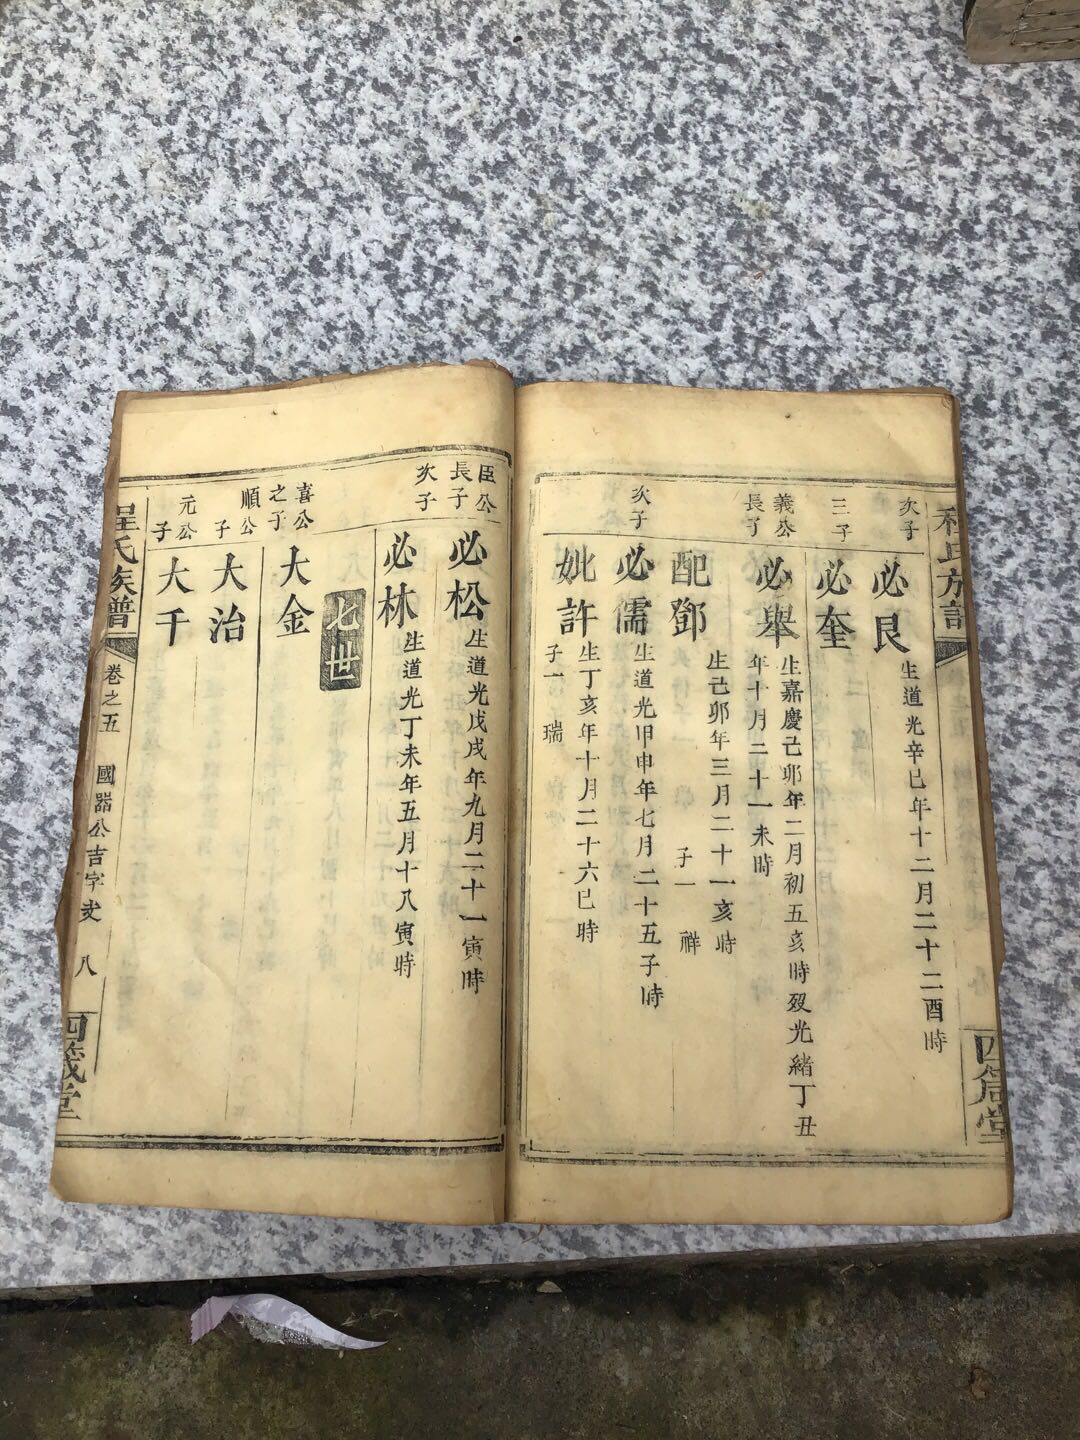 次子
必艮
生道光辛巳年十二月二十二酉時
三子
必奎
義公
長子
必舉
生嘉慶己卯年二月初五亥時歿光緒丁丑
年十月二十一未時
配鄧
生己卯年三月二十一亥時
子一 祥
次子
必儒
生道光甲申年七月二十五子時
妣許
生丁亥年十月二十六巳時
子一 瑞
四箴堂
臣公
長子
必松
生道光戊戌年九月二十一寅時
次子
必林
生道光丁未年五月十八寅時
七世
喜公
之子
大金
順公
子
大治
元公
子
大千
程氏族譜
卷之五
國器公吉字支
八
四箴堂